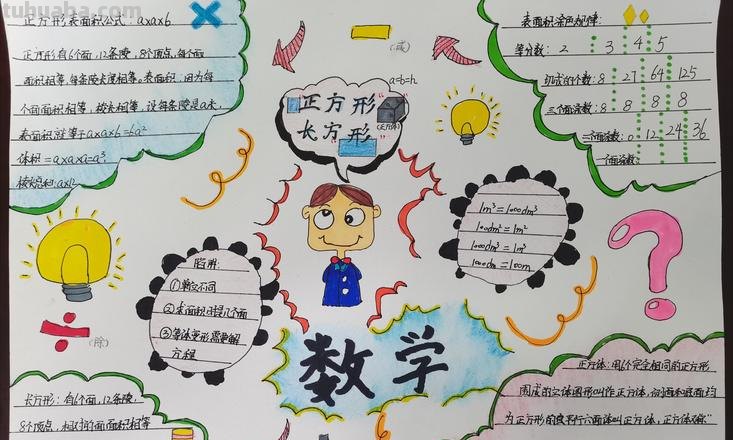 tuhuaba.com
正方形表面积公式：a×a×6
正方形有6个面，12条棱，8个顶点，每个面
面积相等，每条棱长度相等。表面积，因为每
个面面积相等，棱长相等，设每条棱是a米，
表面积就等于a×a×6=6a²
体积=a×a×a=a³
棱长总和：a×12
(减)
a=b=h
正方形
长方形
(正方体)
表面积涂色规律：
等分数：2 3 4 5
切成的个数：8 27 64 125
三个面涂数：8 8 8 8
二个面涂数：0 12 24 36
一个面涂数：
1m³=1000dm³
100dm²=1m²
1000dm³=1m³
1000dm=100m
陷阱：
①单位不同
②表面积讨挖几个面
③等体变形需要解
方程
(除)
数学
长方形：有6个面，12条棱，
8个顶点，相对的面面积相等
正方体：用6个完全相同的正方形
围成的立体图形叫作正方体，
为正方形的